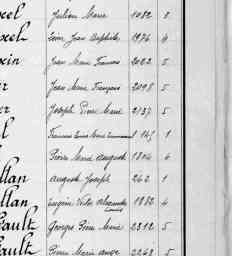 xel Julien Marie 1082 8
xel Jean Baptiste 1976 4
xin Jean Marie Francois 2022 5
er Jean Marie François 2098 5
er Joseph Pierre Marie 2137 5
l Francois Louis Marie 1
l Pierre Marie auguste 1804 6
llan auguste Joseph 262 1
llan Eugène Victor alexandre 1882 4
Louis
Gault Georges Pierre Marie 2312 5
Gault Pierre Marie ange 2263 5